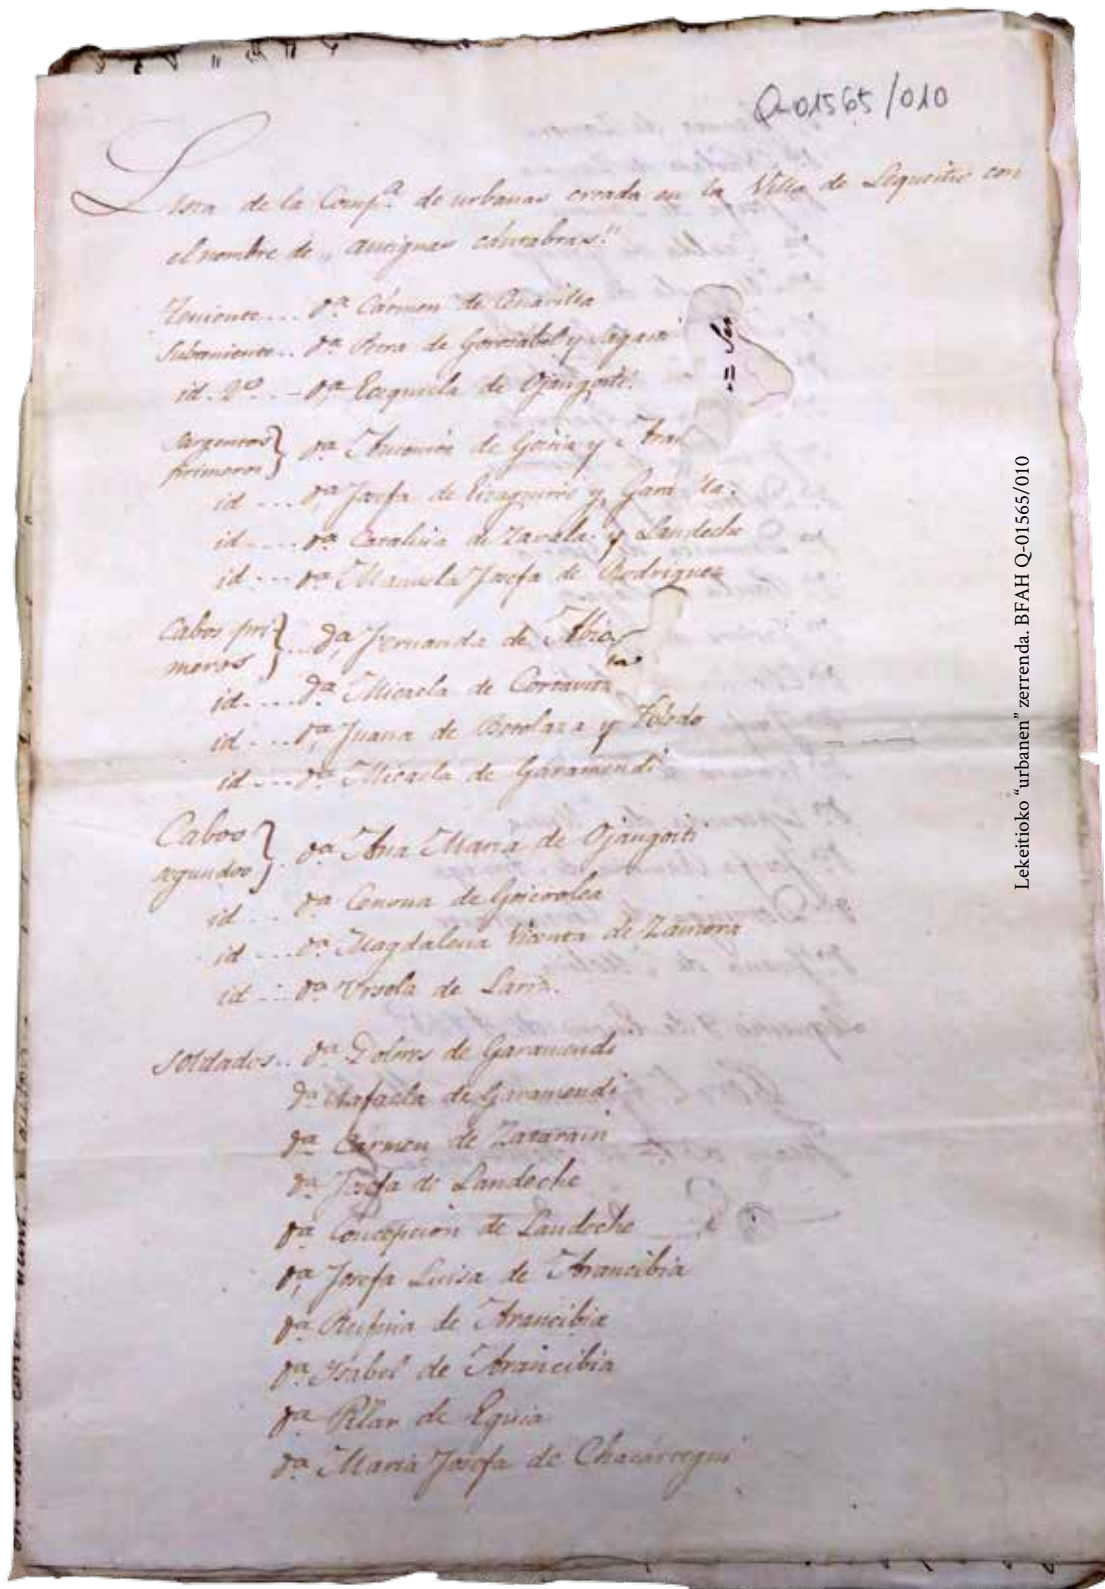 Q-01565/010
Lista de la Comp.ª de urbanas creada en la Villa de Lequeitio con
el nombre de „ antiguas cántabras."
Teniente.... Dª Cármen de
Subteniente.. Dª Petra de Gorosabel y
id. 2º. .- Dª Ecequiela de Ojangoiti.
Sargentos
primeros } Dª Antonia de Goitia y
id .... Dª Josefa de Eizaguirre y
id .... Dª Catalina de Zavala y Landeche
id ... Dª Manuela Josefa de Rodriguez
Cabos pri
meros } ... Dª Fernanda de
id.... Dª Micaela de
id .... Dª Juana de y Toledo
id .... Dª Micaela de Garamendi
Cabos
segundos } . Dª Ana Maria de Ojangoiti
id ... Dª de Goicolea
id .... Dª Magdalena Vicenta de Zamora
id ... Dª Ursola de Lariz.
Soldados.. Dª Dolores de Garamendi
Dª Rafaela de Garamendi
Dª Carmen de Zatarain
Dª Josefa de Landeche
Dª Concepcion de Landeche
Dª Josefa Luisa de Arancibia
Dª Rufina de Arancibia
Dª Isabel de Arancibia
Dª Pilar de Eguia
Dª Maria Josefa de Chacárregui
Lekeitioko “urbanen” zerrenda. BFAH Q-01565/010